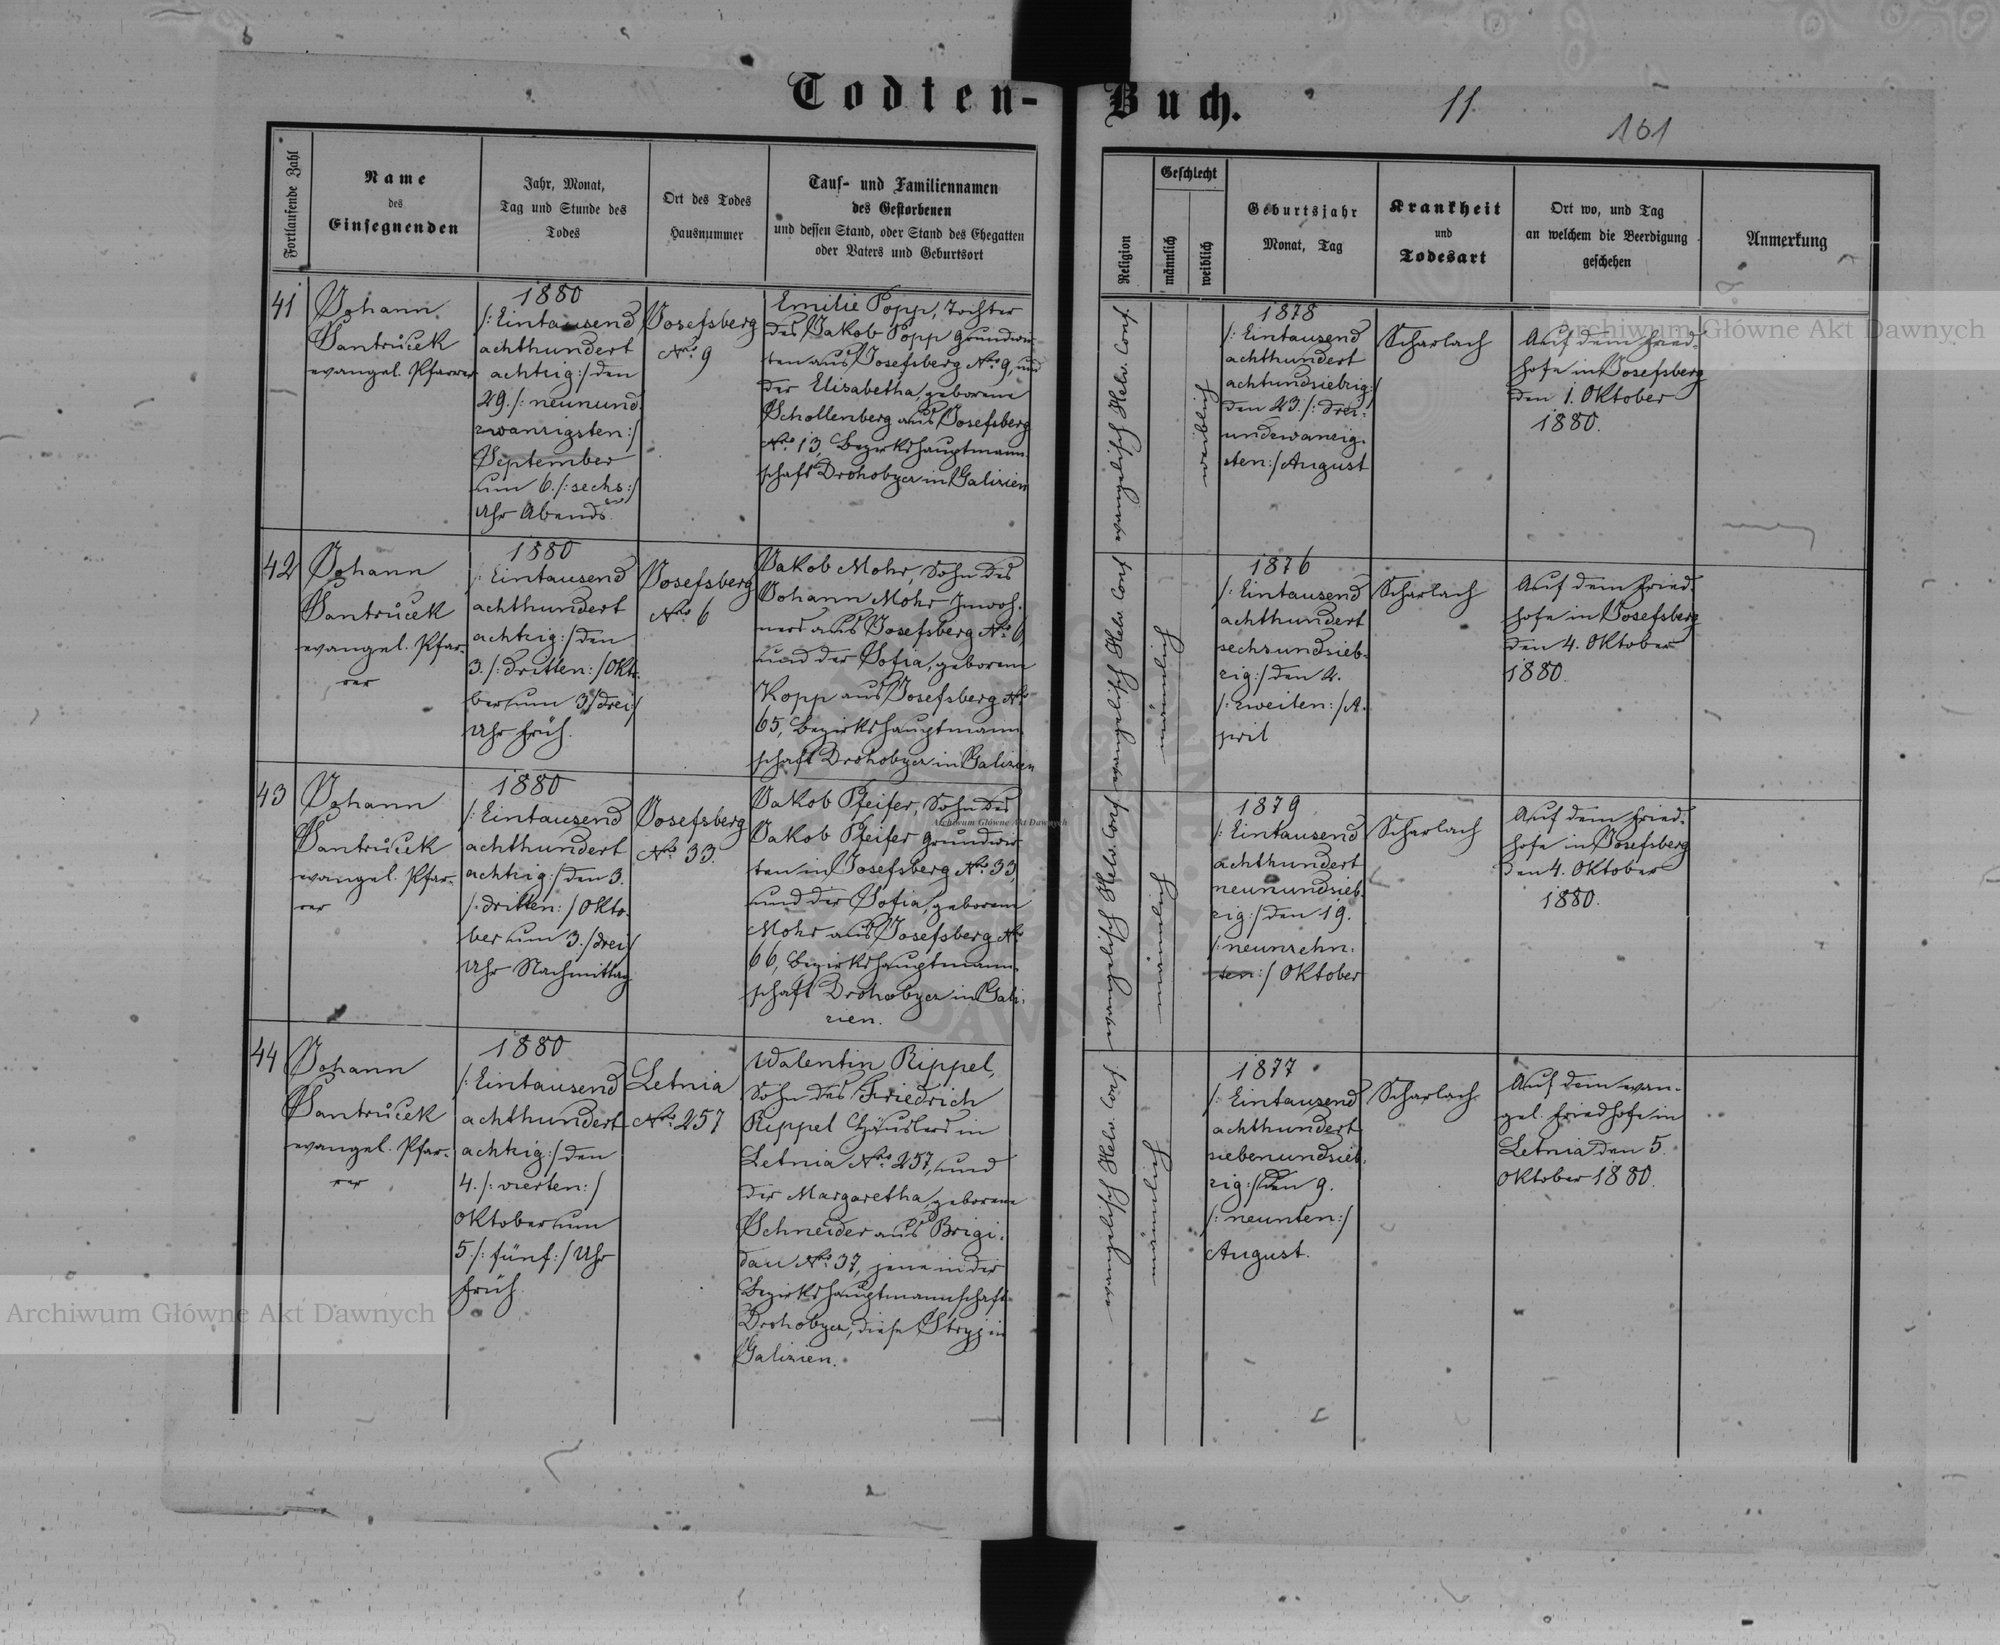 Todten-Buch.
11
101
Fortlaufende Zahl
Name
des
Einsegnenden
Jahr, Monat,
Tag und Stunde des
Todes
Ort des Todes
Hausnummer
Tauf- und Familiennamen
des Gestorbenen
und dessen Stand, oder Stand des Ehegatten
oder Vaters und Geburtsort
Religion
Geschlecht
männlich
weiblich
Geburtsjahr
Monat, Tag
Krankheit
und
Todesart
Ort wo, und Tag
an welchem die Beerdigung
geschehen
Anmerkung
41
Johann
Santruček
evangel. Pfarrer
1880
/: Eintausend
achthundert
achtzig :/ den
29. /: neunund-
zwanzigsten :/
September
um 6. /: sechs :/
Uhr Abends.
Josefsberg
No. 9
Emilie Popp, Tochter
des Jakob Popp Grundwir-
ten aus Josefsberg No. 9, und
der Elisabetha, geborene
Schollenberg aus Josefsberg
No. 13, Bezirkshauptmann-
schaft Drohobycz in Galizien
evangelisch Helv. Conf.
weiblich
1878
/: Eintausend
achthundert
achtundsiebzig :/
den 23. /: drei-
undzwanzig-
sten :/ August
Scharlach
Auf dem Fried-
hofe in Josefsberg
den 1. Oktober
1880.
42
Johann
Santruček
evangel. Pfar-
rer
1880
/: Eintausend
achthundert
achtzig :/ den
3. /: dritten :/ Okto-
ber um 3 /: drei :/
Uhr früh.
Josefsberg
No. 6
Jakob Mohr, Sohn des
Johann Mohr Inwoh-
ners aus Josefsberg No. 6,
und der Sofia, geborene
Kopp aus Josefsberg No.
65, Bezirkshauptmann-
schaft Drohobycz in Galizien
evangelisch Helv. Conf
männlich
1876
/: Eintausend
achthundert
sechsundsieb-
zig :/ den 2.
/: zweiten :/ A-
pril
Scharlach
Auf dem Fried-
hofe in Josefsberg
den 4. Oktober
1880.
43
Johann
Santruček
evangel. Pfar-
rer
1880
/: Eintausend
achthundert
achtzig :/ den 3.
/: dritten :/ Okto-
ber um 3. /: drei :/
Uhr Nachmittag
Josefsberg
No. 33.
Jakob Pfeifer, Sohn des
Jakob Pfeifer Grundwir-
ten in Josefsberg No. 33,
und der Sofia, geborene
Mohr aus Josefsberg No.
66, Bezirkshauptmann-
schaft Drohobycz in Gali-
zien.
evangelisch Helv. Conf
männlich
1879
/: Eintausend
achthundert
neunundsieb-
zig :/ den 19.
/: neunzehn-
ten :/ Oktober
Scharlach
Auf dem Fried-
hofe in Josefsberg
den 4. Oktober
1880.
44
Johann
Santruček
evangel. Pfar-
rer
1880
/: Eintausend
achthundert
achtzig :/ den
4. /: vierten :/
Oktober um
5 /: fünf :/ Uhr
früh.
Letnia
No. 257
Walentin Rippel,
Sohn des Friedrich
Rippel Häuslers in
Letnia No. 257, und
der Margaretha, geborene
Schneider aus Brigi-
dau No. 37, jene in der
Bezirkshauptmannschaft
Drohobycz, diese Stryj in
Galizien.
evangelisch Helv. Conf.
männlich
1877
/: Eintausend
achthundert
siebenundsieb-
zig :/ den 9.
/: neunten :/
August.
Scharlach
Auf dem evan-
gel. Friedhofe in
Letnia den 5.
Oktober 1880.
Archiwum Główne Akt Dawnych
Archiwum Główne Akt Dawnych
Archiwum Główne Akt Dawnych